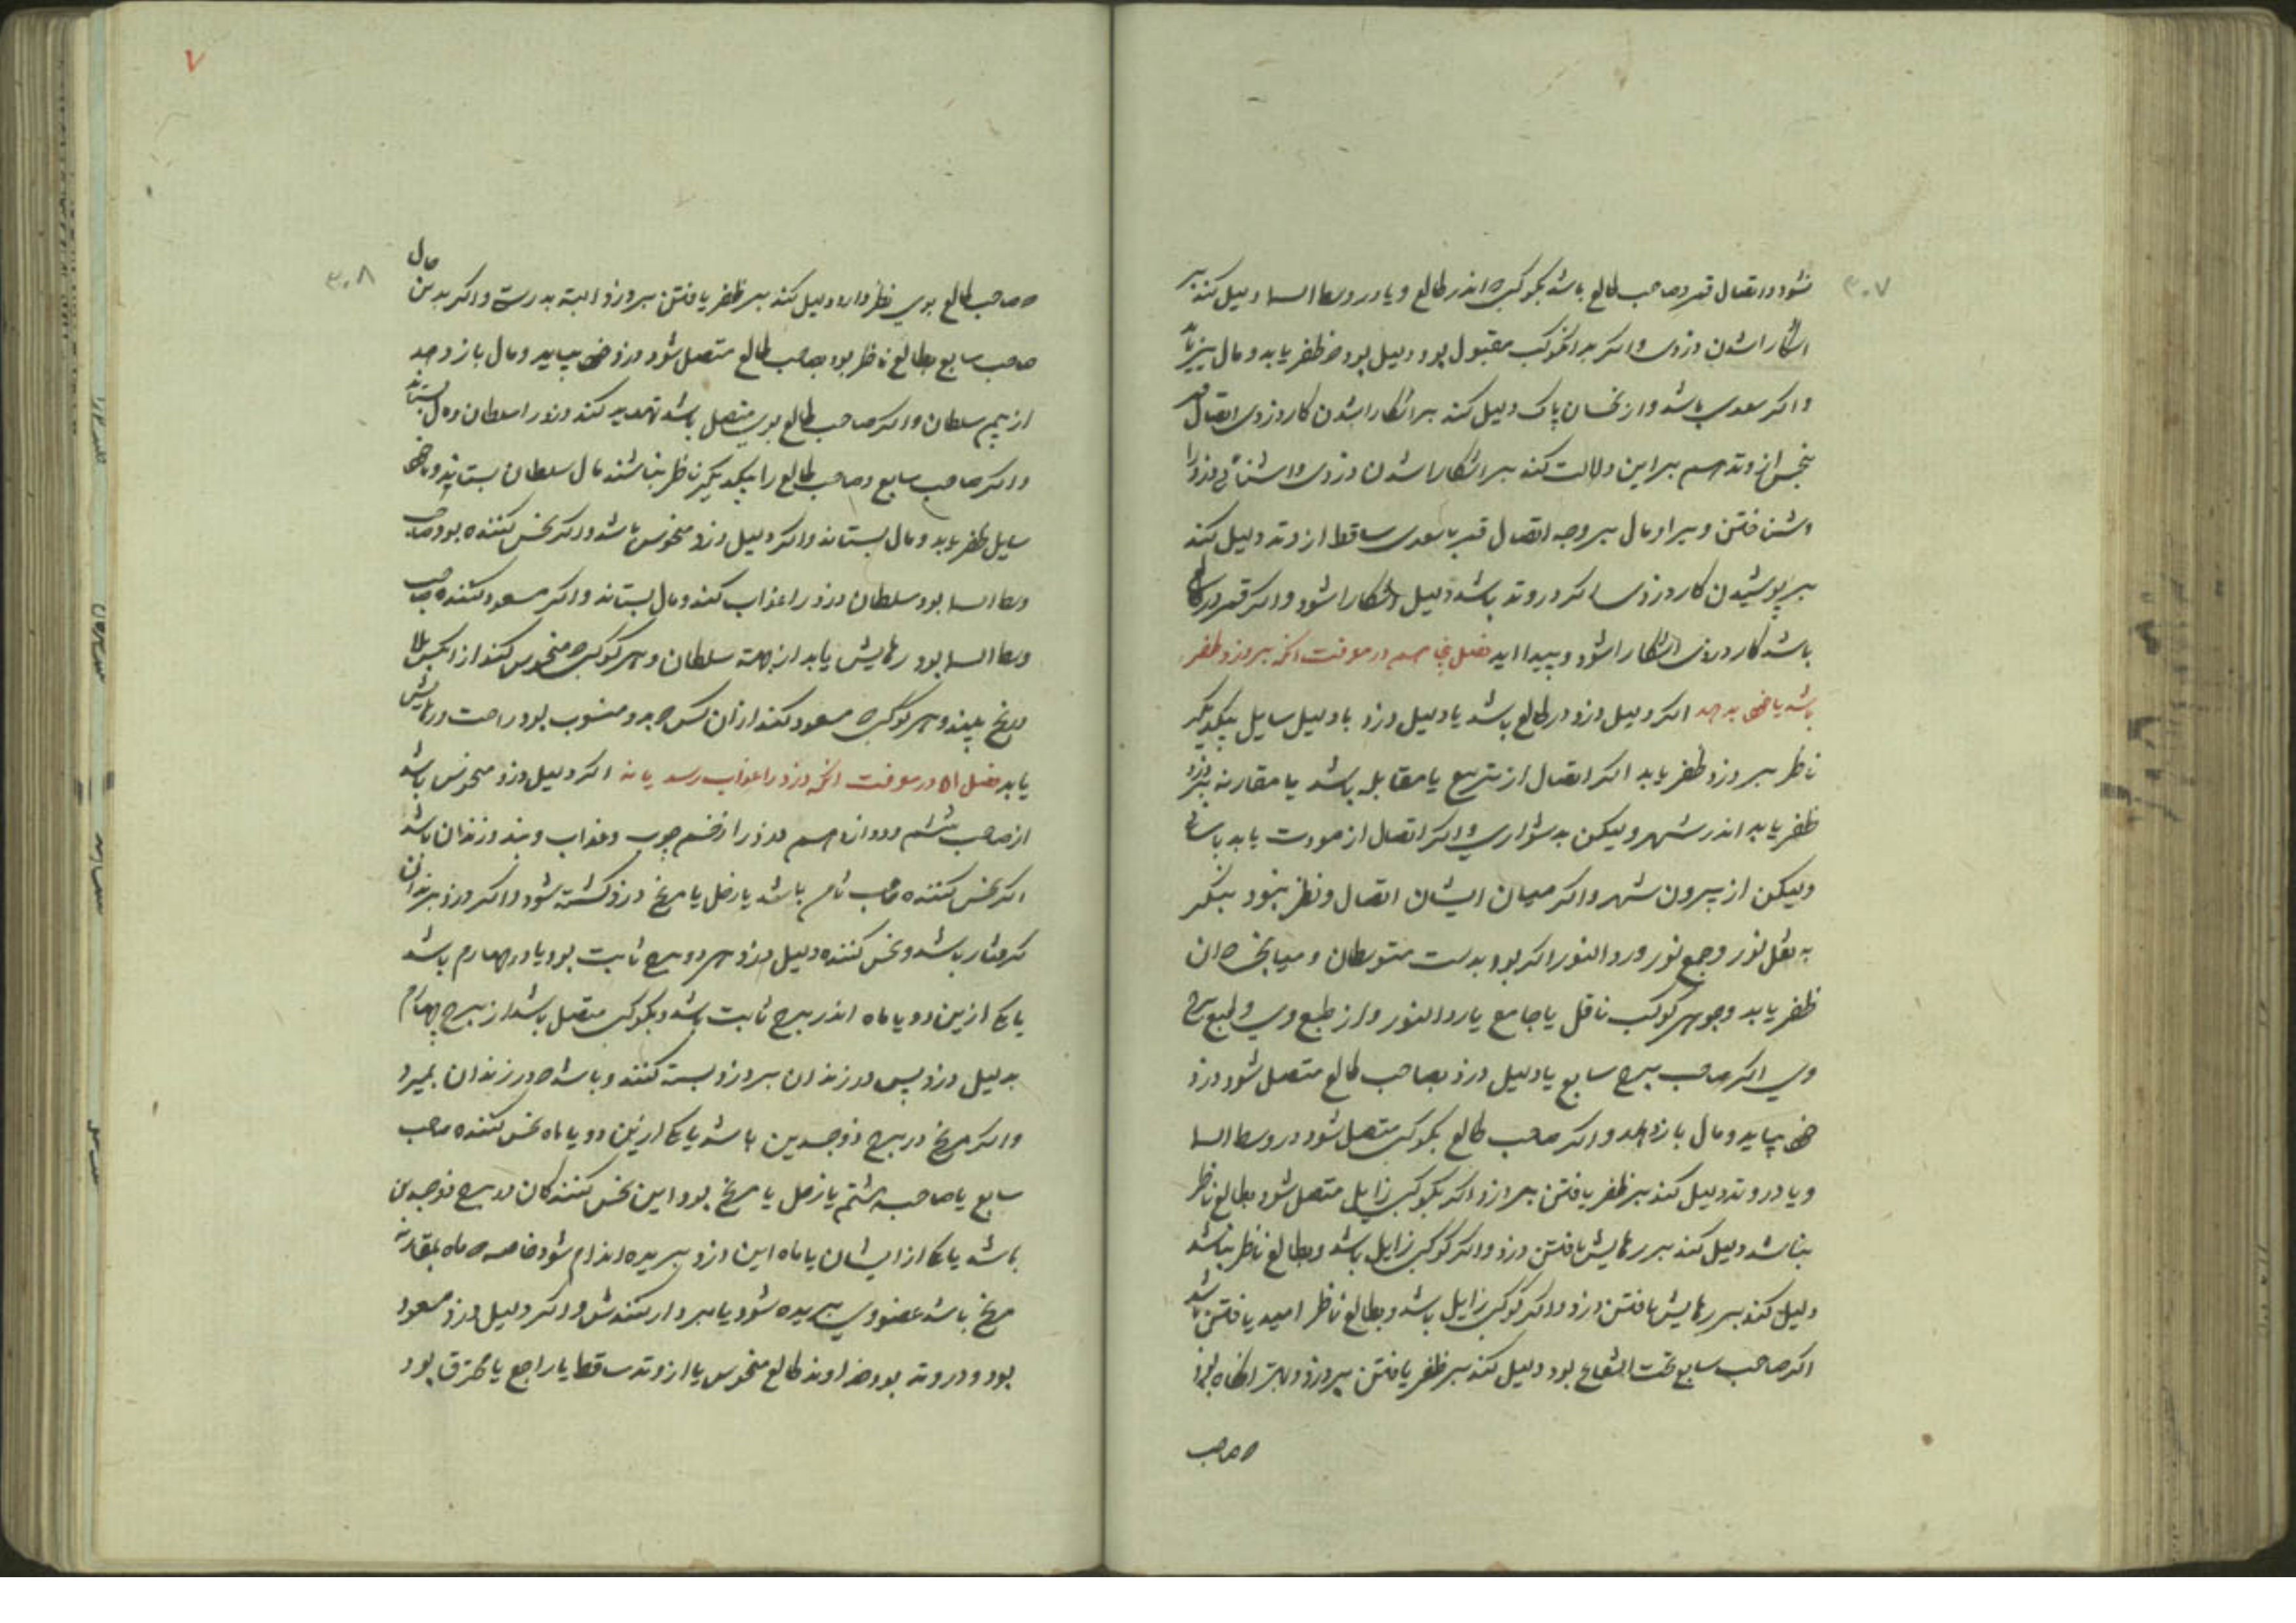 ۳۰۷
نشود و اتصال قمر و صاحب طالع باشد بکوکبی که اندر طالع و یا در وسط السما دلیل کند بر
اشکارا شدن دزدی و اکر بد انکوکب مقبول بود دلیل بود که ظفر یابد و مال نیز یابد
و اکر سعدی باشد و از نحسان پاک دلیل کند بر اشکارا شدن کار دزدی اتصال قمر
بنحس از وتد هم بر این دلالت کند بر اشکارا شدن دزدی و اشنائی دزد را
و شناختن و بر او مال بر وجه اتصال قمر با سعدی ساقط از وتد دلیل کند
بر پوشیدن کار دزدی اکر در وتد باشد دلیل اشکارا شود و اکر قمر در طالع
باشد کار دزدی اشکارا شود و پیدا اید فصل پنجاهم در معرفت انکه بر دزد ظفر
باشد یا خود بدهد اکر دلیل دزد در طالع باشد یا دلیل دزد با دلیل سایل بیکدیکر
ناظر بر دزد ظفر یابد اکر اتصال از تربیع یا مقابله باشد یا مقارنه بر دزد
ظفر یابد اندر شهر ولیکن بدشواری و اکر اتصال از مودت یابد باسانی
ولیکن از بیرون شهر و اکر میان ایشان اتصال و نظر نبود بنکر
به نقل نور و جمع نور و رد النور اکر بود بدست متوسطان و میانجی ان
ظفر یابد و جوهر کوکب ناقل یا جامع یا راد النور و از طبع وی و طبع برج
وی اکر صاحب برج سابع یا دلیل دزد بصاحب طالع متصل شود دزد
خود بیاید و مال باز دهد و اکر صاحب طالع بکوکبی متصل شود در وسط السما
و یا در وتد دلیل کند بر ظفر یافتن بر دزد اکر بکوکبی زایل متصل شود بطالع ناظر
نباشد دلیل کند بر رهایش یافتن دزد و اکر کوکبی زایل باشد و بطالع ناظر نباشد
دلیل کند بر رهایش یافتن دزد و اکر کوکبی زایل باشد و بطالع ناظر امید یافتن باشد
اکر صاحب سابع تحت الشعاع بود دلیل کند بر ظفر یافتن بر دزد و بهتر انکاه بود
که صاحب
۷
۳۰۸
که صاحب طالع بوی نظر دارد دلیل کند بر ظفر یافتن بر دزد البته بدرست و اکر بدین حال
صاحب سابع بطالع ناظر بود بصاحب طالع متصل شود دزد خود بیاید و مال باز دهد
از بیم سلطان و اکر صاحب طالع بوی متصل باشد تهدید کند دزد را سلطان و مال بستاند
و اکر صاحب سابع و صاحب طالع را بیکدیکر ناظر نباشند مال سلطان بستاند و ناخود
سایل ظفر یابد و مال بستاند و اکر دلیل دزد منحوس باشد و اکر نحس کننده بود صاحب
وسط السما بود سلطان دزد را عذاب کند و مال بستاند و اکر مسعود کننده صاحب
وسط السما بود رهایش یابد از جهت سلطان و هر کوکبی که منحوس کند از انکس بلا
و رنج بیند و هر کوکبی که مسعود کند از ان کس که بدو منسوب بود راحت و رهایش
یابد فصل ۵۱ در معرفت انکه دزد را عذاب رسد یا نه اکر دلیل دزد منحوس باشد
از صاحب ششم و دوازدهم دزد را زخم چوب و عذاب و بند و زندان باشد
اکر نحس کننده صاحب ثامن باشد یا زحل یا مریخ دزد کشته شود و اکر دزد بزندان
کرفتار باشد و نحس کننده دلیل دزد هر دو برج ثابت بود یا در چهارم باشد
یا یکی ازین دو یا ماه اندر برج ثابت باشد و بکوکبی متصل باشد از برج چهارم
بدلیل دزد پس در زندان بر دزد بسته کنند و باشد که در زندان بمیرد
و اکر مریخ در برج ذو جسدین باشد یا یکی ازین دو یا ماه نحس کننده صاحب
سابع یا صاحب هشتم یا زحل یا مریخ بود و این نحس کنندکان در برج ذو جسدین
باشد یا یکی از ایشان یا ماه این دزد بریده اندام شود خاصه که ماه بمقارنه
مریخ باشد عضو وی بریده شود یا بر دار کنندش و اکر دلیل دزد مسعود
بود و در وتد بود خداوند طالع منحوس یا از وتد ساقط یا راجع یا محترق بود